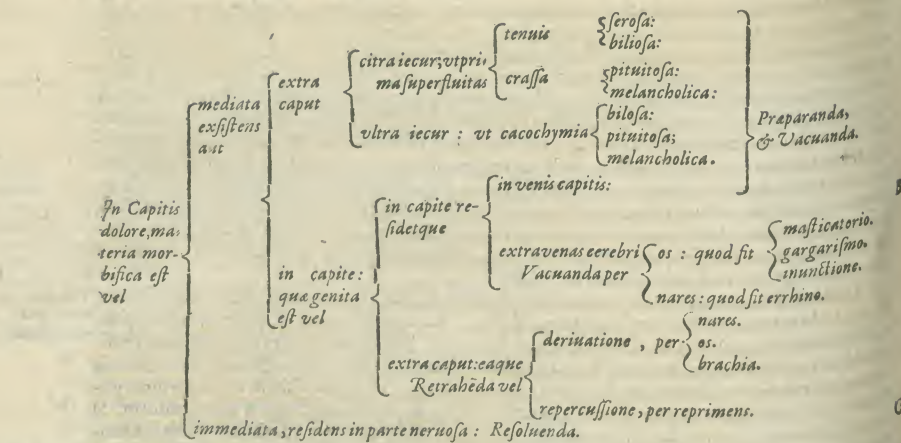 In Capitis
dolore, ma-
teria mor-
bifica eſt
vel
mediata
exſiſtens
aut
extra
caput
citra iecur; vt pri-
ma ſuperfluitas
tenuis
ſeroſa:
bilioſa:
craſſa
pituitoſa:
melancholica:
vltra iecur : vt cacochymia
biloſa:
pituitoſa;
melancholica.
Præparanda,
& Vacuanda.
in capite:
quæ genita
eſt vel
in capite re-
ſidetque
in venis capitis:
extra venas eerebri
Vacuanda per
os : quod fit
maſticatorio.
gargariſmo.
inunctione.
nares : quod fit errhino.
extra caput: eaque
Retrahēda vel
deriuatione , per
nares.
os.
brachia.
repercuſſione, per reprimens.
immediata, reſidens in parte neruoſa : Reſoluenda.